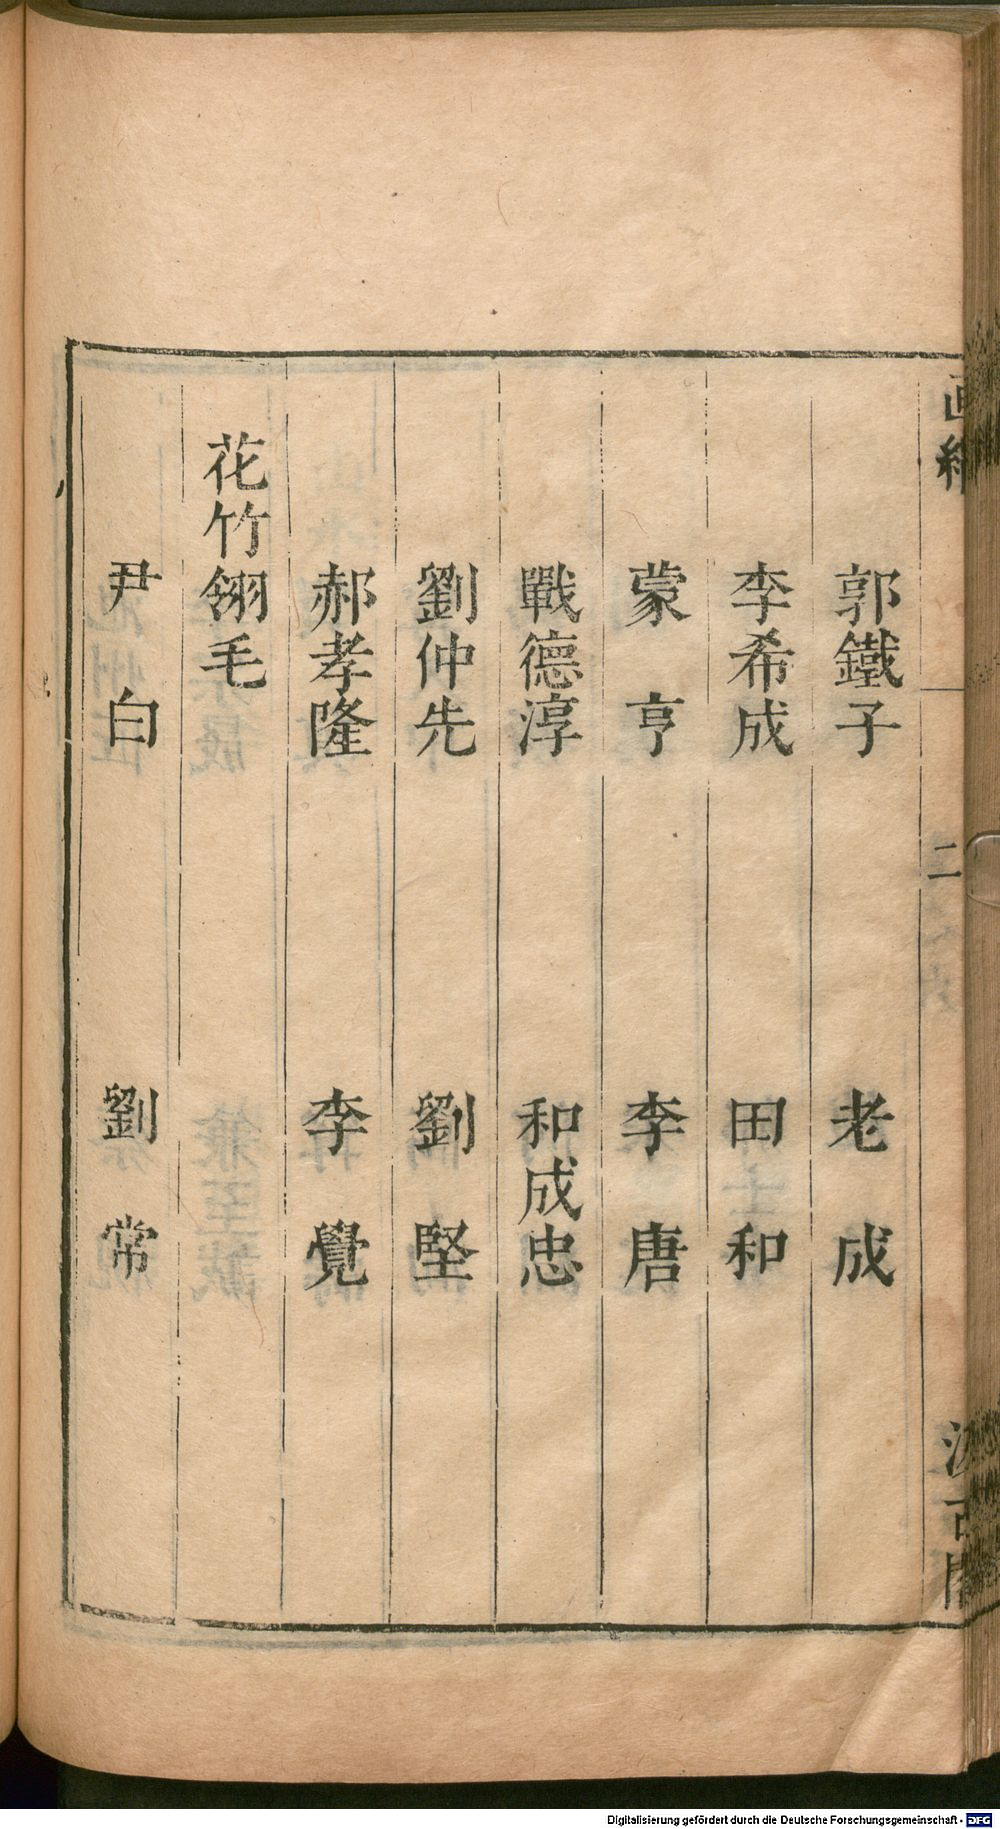 郭鐵子 老成
李希成 田和
蒙亨 李唐
戰德淳 和成忠
劉仲先 劉堅
郝孝隆 李覺
花竹翎毛
尹白 劉常
二
Digitalisierung gefördert durch die Deutsche Forschungsgemeinschaft - DFG